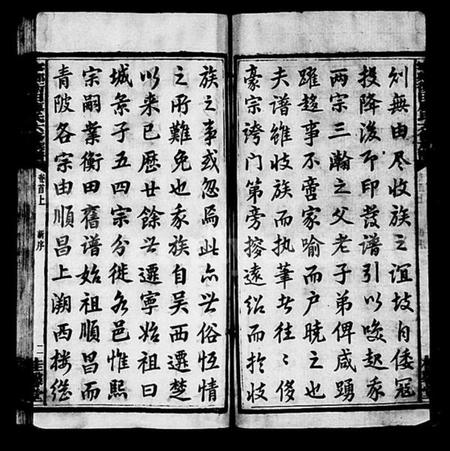 列無由尽收族之誼坡自倭寇
投降後即印發譜引以喚起我
两宗三瀚之父老子弟俾咸踴
躍趨事不啻家喻而户曉之也
夫譜雖收族而执筆者往〻侈
豪宗誇门第旁搜遠紹而於收
族之事或忽焉此亦世俗恒情
之所難免也我族自吴西遷楚
以来已歷廿餘世遷寧始祖曰
城崇子五四宗分徙各邑惟熙
宗嗣業衡田舊譜始祖順昌而
青陂各宗由順昌上溯西楼繼
卷首上
新序
二